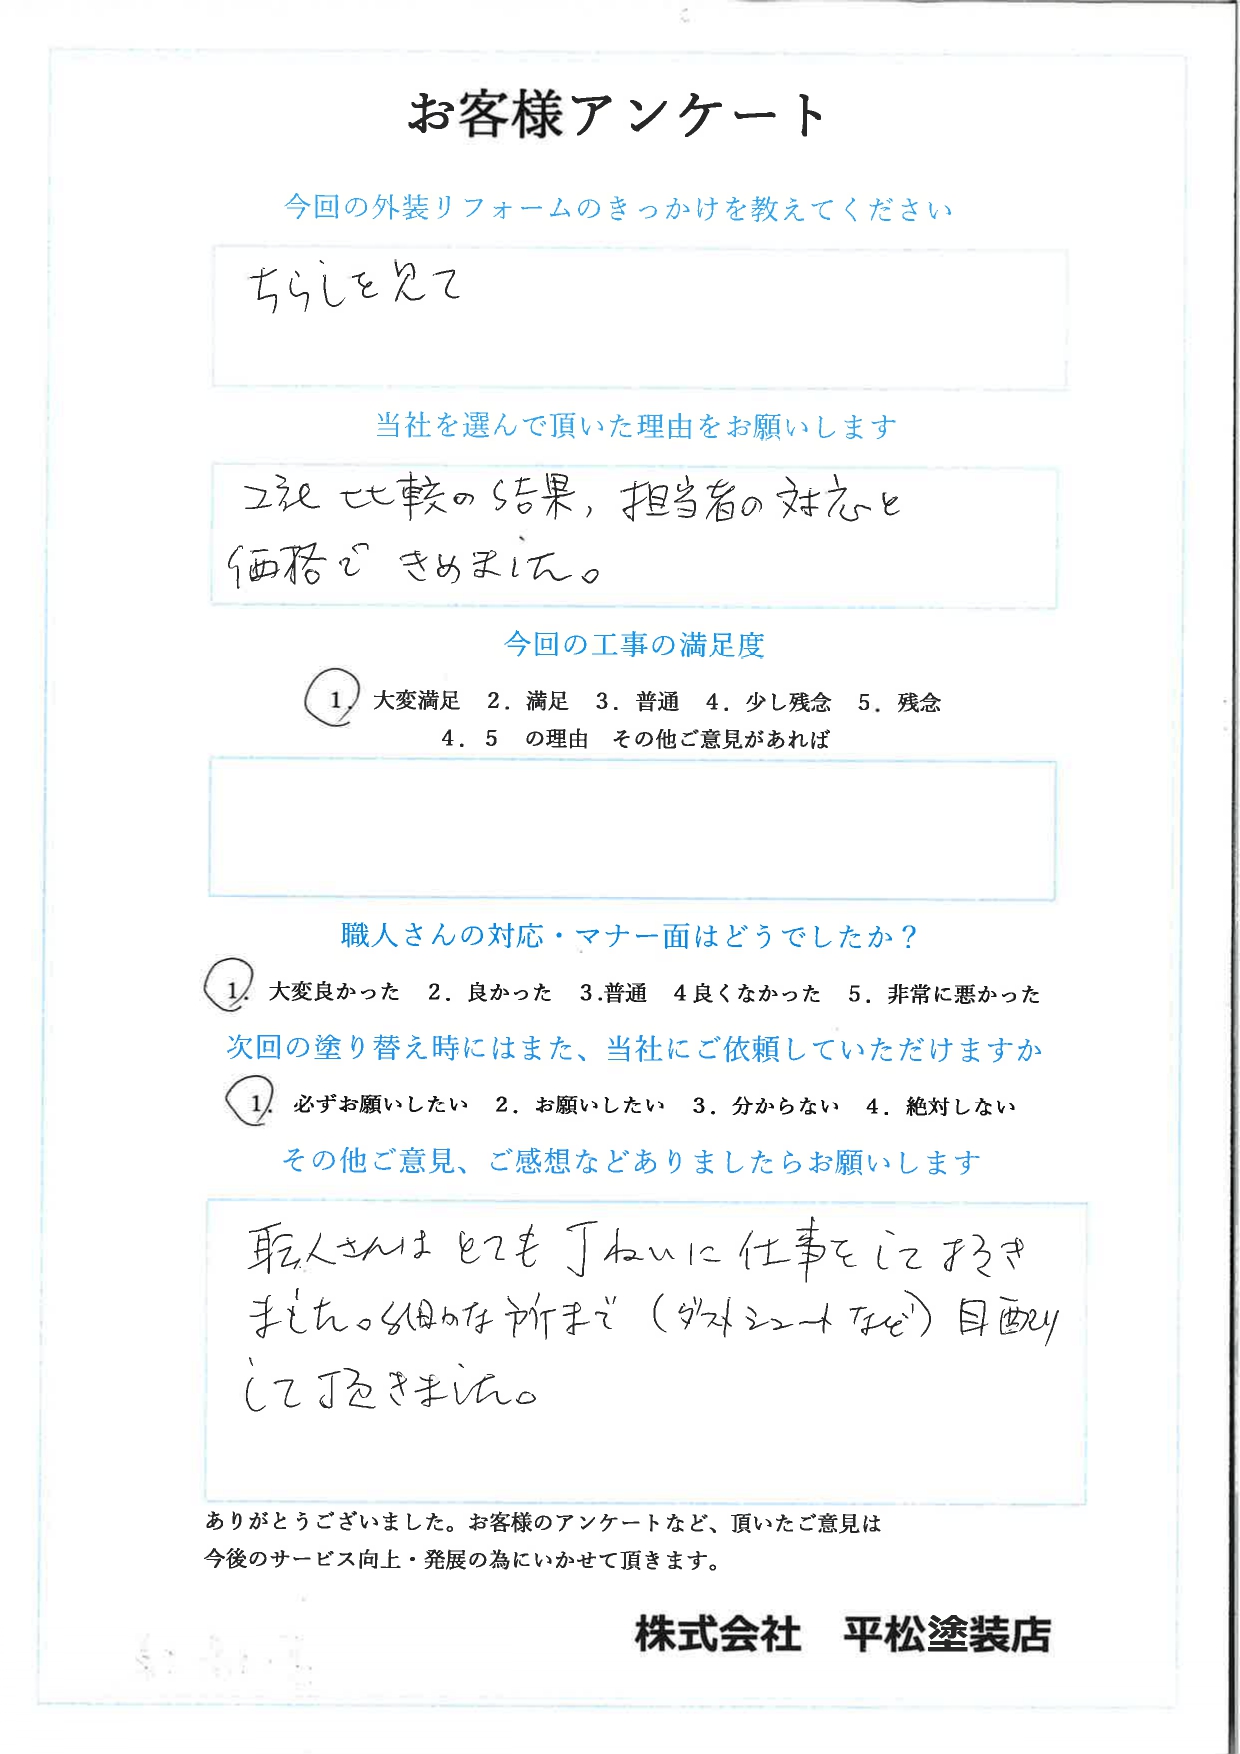 お客様アンケート
今回の外装リフォームのきっかけを教えてください
ちらしを見て
当社を選んで頂いた理由をお願いします
2社比較の結果, 担当者の対応と
価格で きめました。
今回の工事の満足度
1. 大変満足 2. 満足 3. 普通 4. 少し残念 5. 残念
4. 5 の理由 その他ご意見があれば
職人さんの対応・マナー面はどうでしたか？
1. 大変良かった 2. 良かった 3.普通 4良くなかった 5. 非常に悪かった
次回の塗り替え時にはまた、当社にご依頼していただけますか
1. 必ずお願いしたい 2. お願いしたい 3. 分からない 4. 絶対しない
その他ご意見、ご感想などありましたらお願いします
職人さんは とても 丁ねいに 仕事をして
ました。細かな所まで（ダストシュートなど）目配り
して頂きました。
ありがとうございました。お客様のアンケートなど、頂いたご意見は
今後のサービス向上・発展の為にいかせて頂きます。
株式会社 平松塗装店